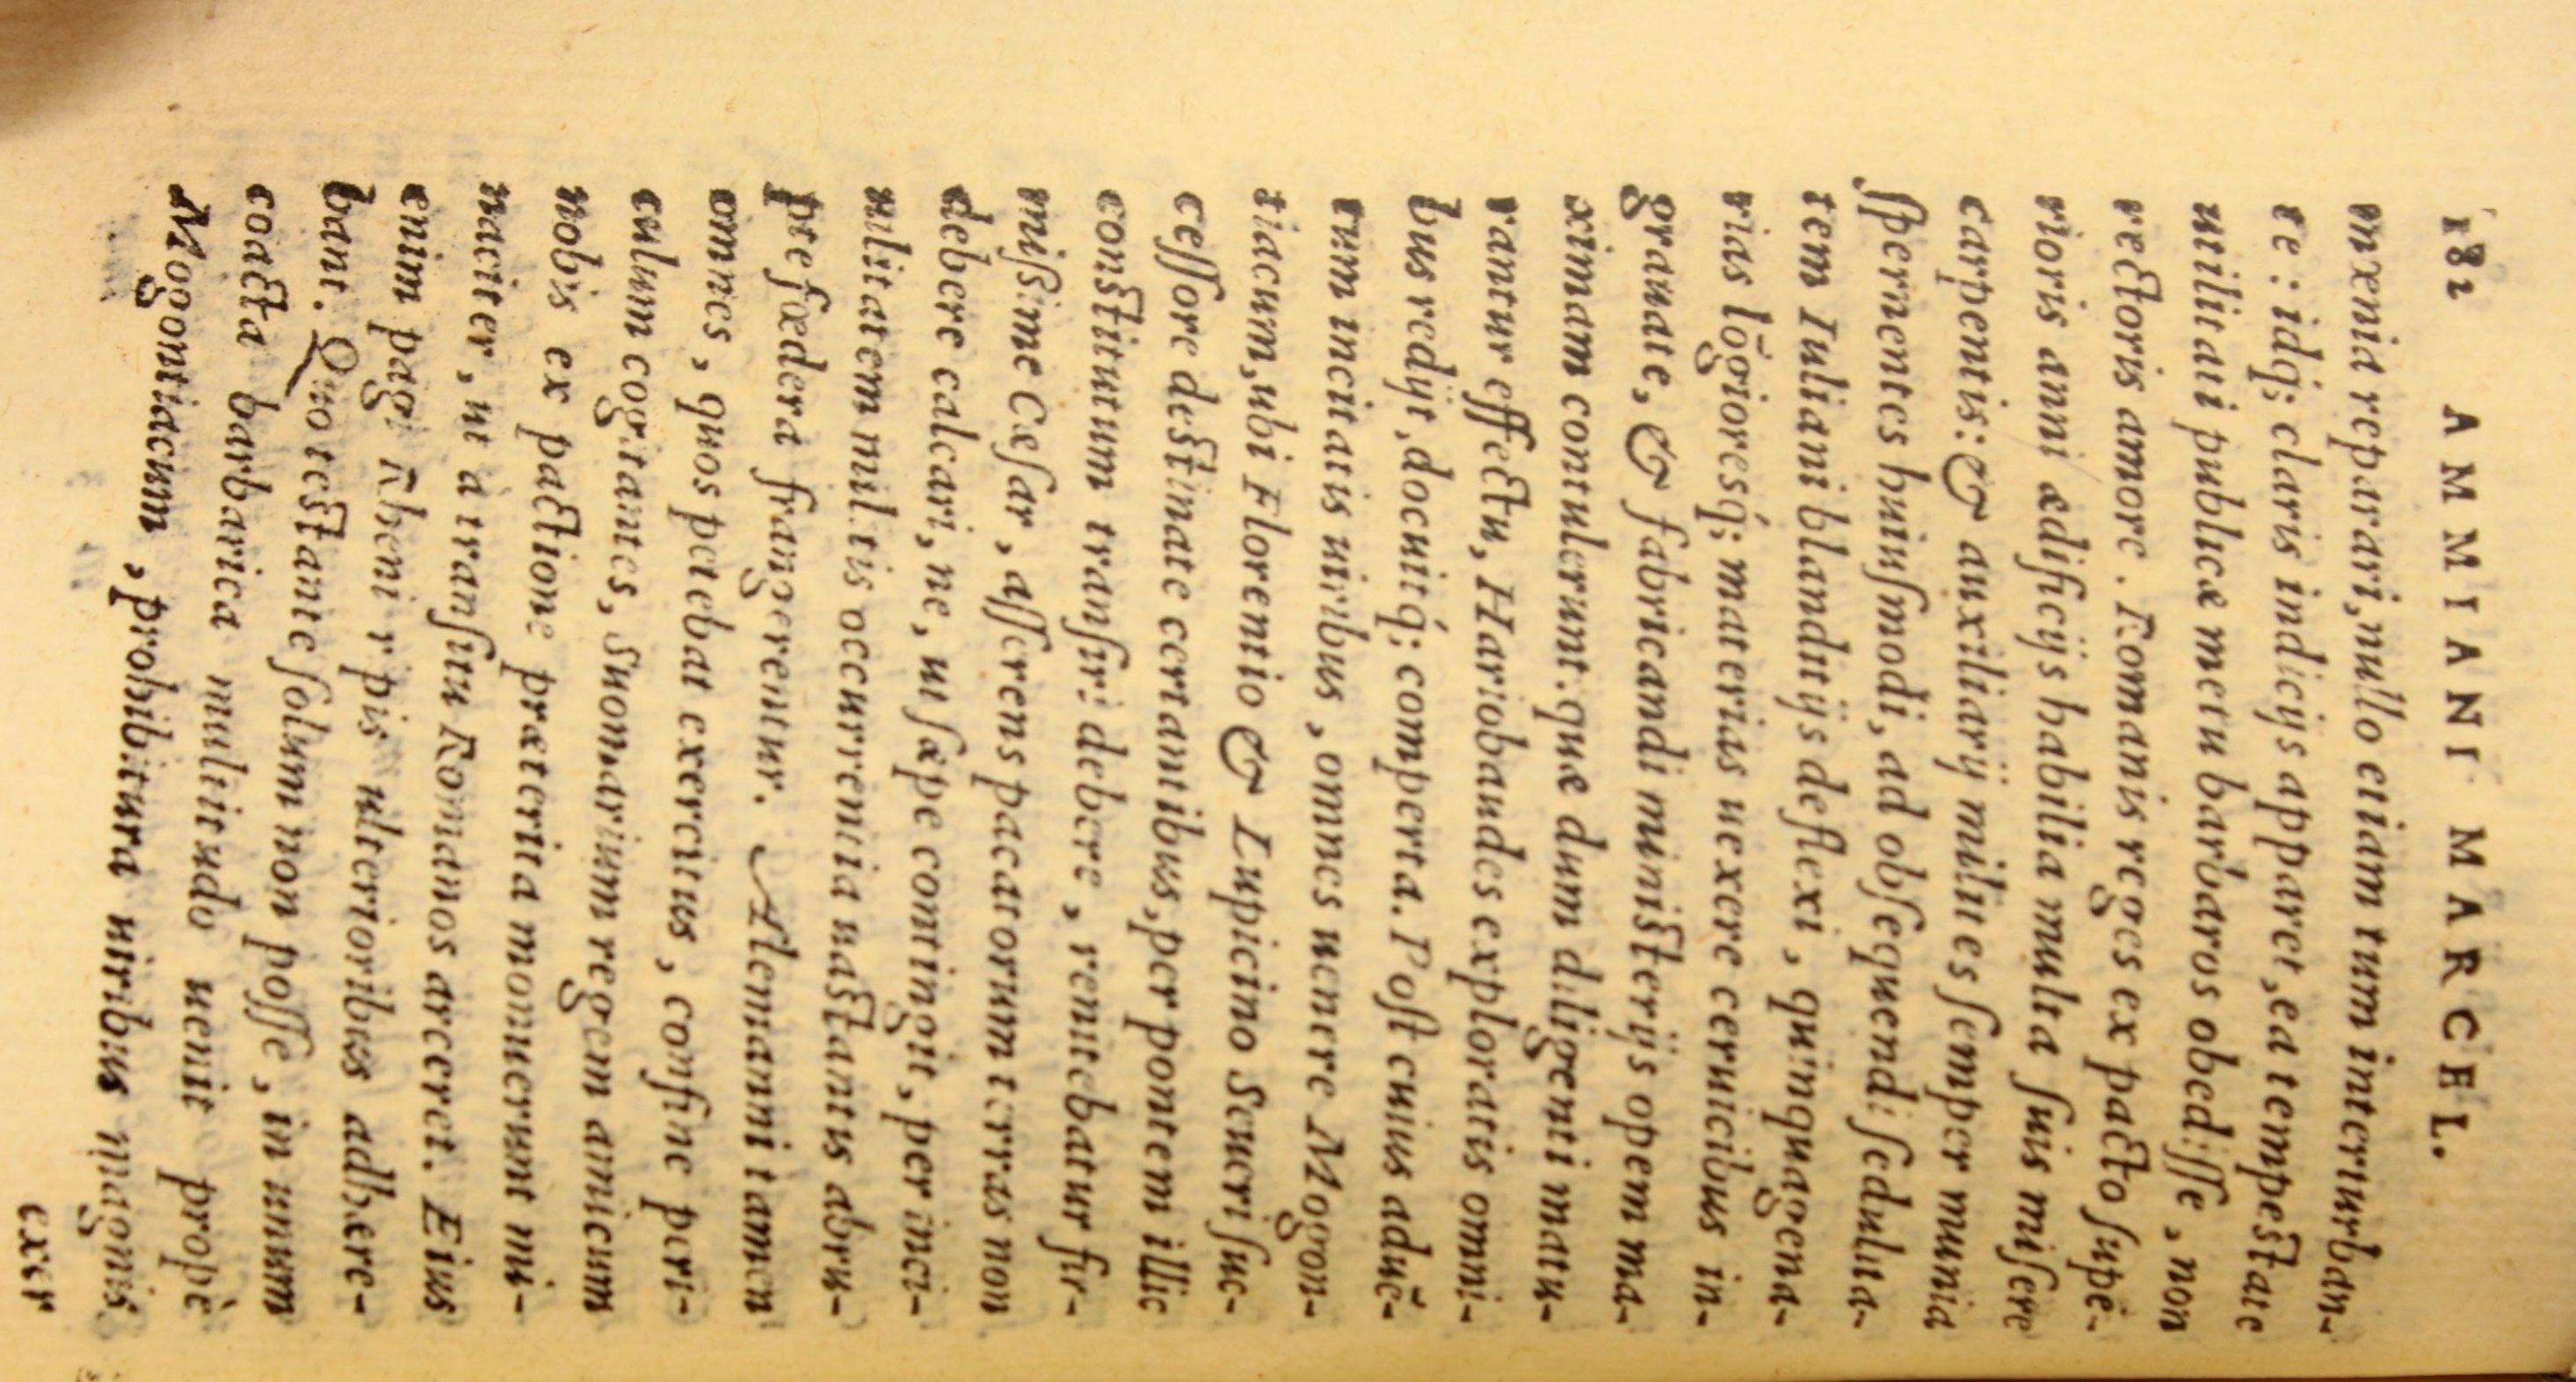 182 AMMIANI MARCEL.
mœnia reparari, nullo etiam tum interturban-
te: idq; claris indicijs apparet, ea tempestate
utilitati publicæ metu barbaros obedisse, non
rectoris amore. Romanis reges ex pacto supe-
rioris anni ædificijs habilia multa suis misere
carpentis: & auxiliarij milites semper munia
spernentes huiusmodi, ad obsequendi sedulita-
tem Iuliani blanditijs deflexi, quinquagena-
rias lõgioresq́; materias uexere ceruicibus in-
grauate, & fabricandi ministerijs opem ma-
ximam contulerunt. quæ dum diligenti matu-
rantur effectu, Hariobaudes exploratis omni-
bus redijt, docuitq́; comperta. Post cuius aduẽ-
tum incitatis uiribus, omnes uenere Mogon-
tiacum, ubi Florentio & Lupicino Seueri suc-
cessore destinate certantibus, per pontem illic
constitutum transiri debere, renitebatur fir-
missime Cæsar, asserens pacatorum terras non
debere calcari, ne, ut sæpe contingit, per inci-
uilitatem militis occurrentia uastantis abru-
ptè fœdera frangerentur. Alemanni tamen
omnes, quos petebat exercitus, confine peri-
culum cogitantes, Suomarium regem amicum
nobis ex pactione præterita monuerunt mi-
naciter, ut à transitu Romanos arceret. Eius
enim pagi Rheni ripis ulterioribus adhære-
bant. Quo testante solum non posse, in unum
coacta barbarica multitudo uenit propè
Mogontiacum, prohibitura uiribus magnis
exer